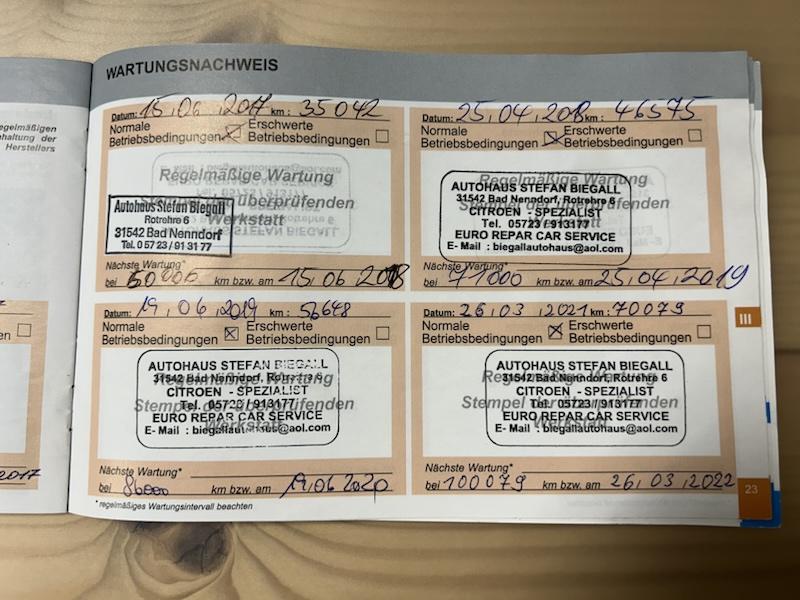 egelmäßigen
haltung der
Herstellers
en
2017
WARTUNGSNACHWEIS
Datum: 15.06.2017 km: 35042
Normale Erschwerte
Betriebsbedingungen Betriebsbedingungen
Regelmäßige Wartung
Stempel der überprüfenden
Werkstatt
Autohaus Stefan Biegall
Rotrehre 6
31542 Bad Nenndorf
Tel. 0 57 23 / 91 31 77
Nächste Wartung*
bei 60000 km bzw. am 15.06.2018
Datum: 25.04.2018 km: 46575
Normale Erschwerte
Betriebsbedingungen Betriebsbedingungen
Regelmäßige Wartung
Stempel der überprüfenden
AUTOHAUS STEFAN BIEGALL
31542 Bad Nenndorf, Rotrehre 6
CITROEN - SPEZIALIST
Tel. 05723 / 913177
EURO REPAR CAR SERVICE
E- Mail : biegallautohaus@aol.com
Nächste Wartung*
bei 71000 km bzw. am 25.04.2019
Datum: 19.06.2019 km: 56648
Normale Erschwerte
Betriebsbedingungen Betriebsbedingungen
Regelmäßige Wartung
Stempel der überprüfenden
Werkstatt
AUTOHAUS STEFAN BIEGALL
31542 Bad Nenndorf, Rotrehre 6
CITROEN - SPEZIALIST
Tel. 05723 / 913177
EURO REPAR CAR SERVICE
E- Mail : biegallautohaus@aol.com
Nächste Wartung*
bei 86000 km bzw. am 19.06.2020
Datum: 26.03.2021 km: 70079
Normale Erschwerte
Betriebsbedingungen Betriebsbedingungen
Regelmäßige Wartung
Stempel der überprüfenden
Werkstatt
AUTOHAUS STEFAN BIEGALL
31542 Bad Nenndorf, Rotrehre 6
CITROEN - SPEZIALIST
Tel. 05723 / 913177
EURO REPAR CAR SERVICE
E- Mail : biegallautohaus@aol.com
Nächste Wartung*
bei 100079 km bzw. am 26.03.2022
* regelmäßiges Wartungsintervall beachten
III
23